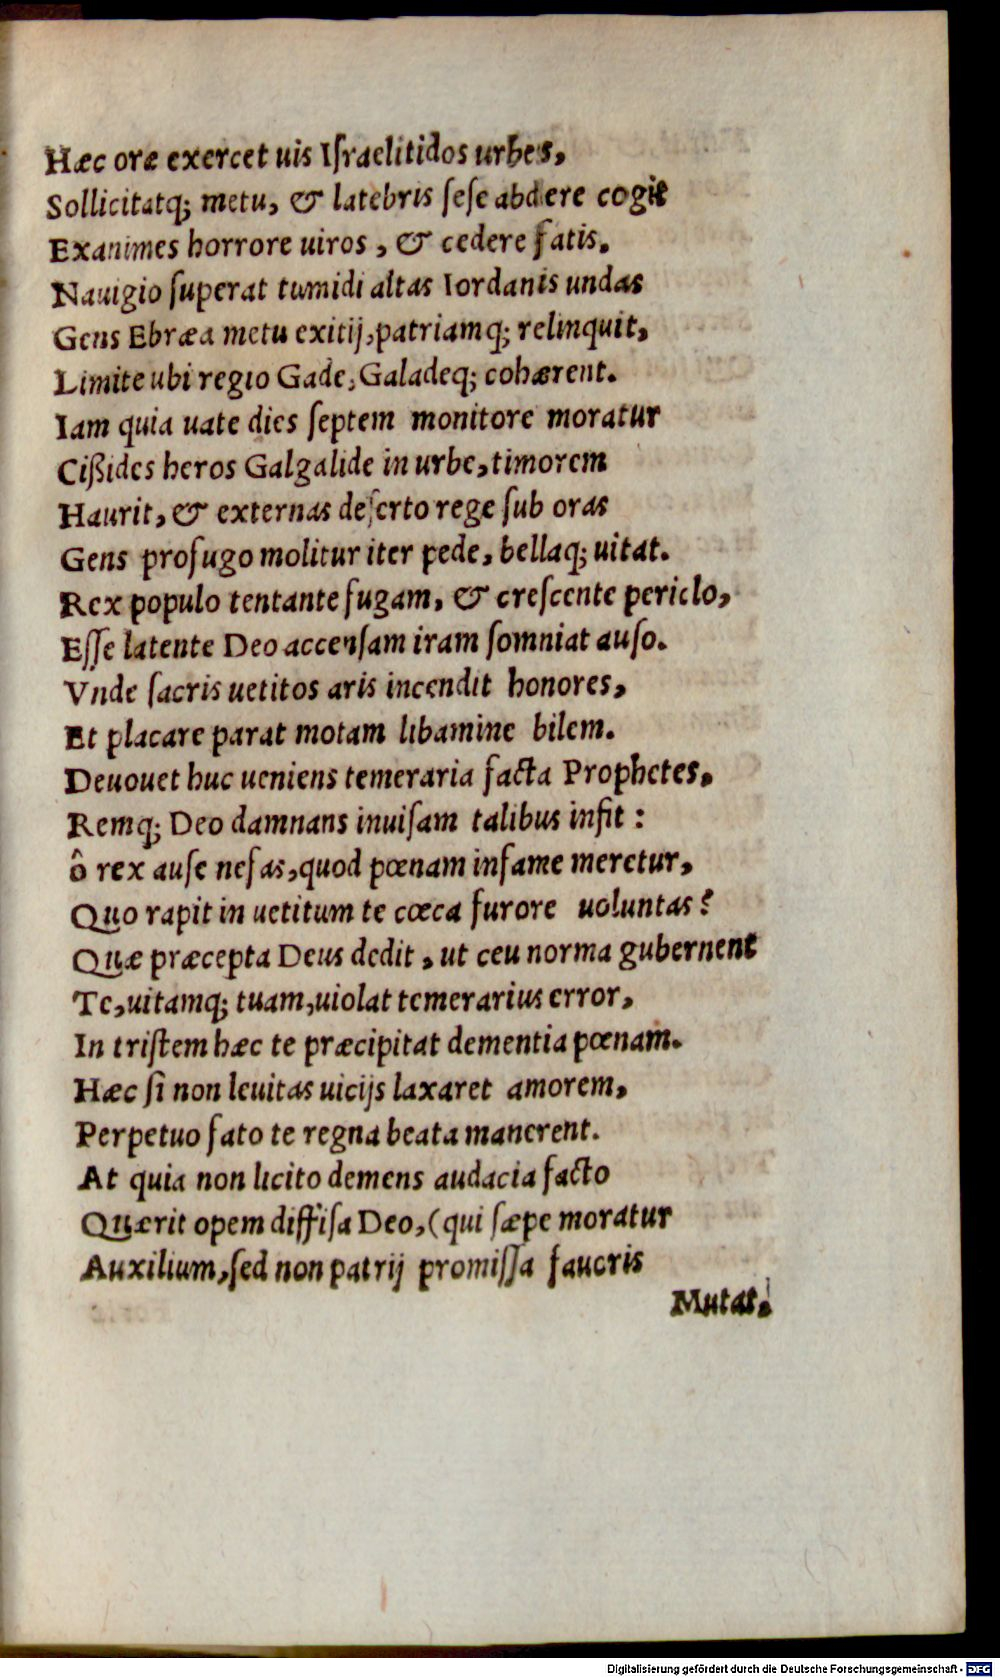 Hæc oræ exercet uis Iſraelitidos urbes,
Sollicitatq; metu, & latebris ſeſe abdere cogit
Exanimes horrore uiros, & cedere fatis.
Nauigio ſuperat tumidi altas Iordanis undas
Gens Ebræa metu exitij, patriamq; relinquit,
Limite ubi regio Gade, Galadeq; cohærent.
Iam quia uate dies ſeptem monitore moratur
Cißides heros Galgalide in urbe, timorem
Haurit, & externas deſerto rege ſub oras
Gens profugo molitur iter pede, bellaq; uitat.
Rex populo tentante fugam, & creſcente periclo,
Eſſe latente Deo accenſam iram ſomniat auſo.
Vnde ſacris uetitos aris incendit honores,
Et placare parat motam libamine bilem.
Deuouet huc ueniens temeraria facta Prophetes,
Remq; Deo damnans inuiſam talibus infit :
ô rex auſe nefas, quod pœnam infame meretur,
Quo rapit in uetitum te cœca furore uoluntas?
Quæ præcepta Deus dedit, ut ceu norma gubernent
Te, uitamq; tuam, uiolat temerarius error,
In triſtem hæc te præcipitat dementia pœnam.
Hæc ſi non leuitas uicijs laxaret amorem,
Perpetuo fato te regna beata manerent.
At quia non licito demens audacia facto
Quærit opem diffiſa Deo, (qui ſæpe moratur
Auxilium, ſed non patrij promiſſa faucris
Mutat.
Digitalisierung gefördert durch die Deutsche Forschungsgemeinschaft - DFG